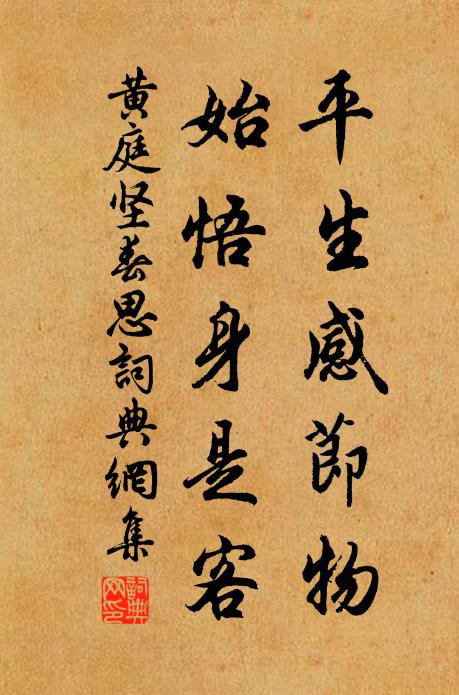 平生感節物
始悟身是客
黄庭坚春思詞典網集
詞典网印